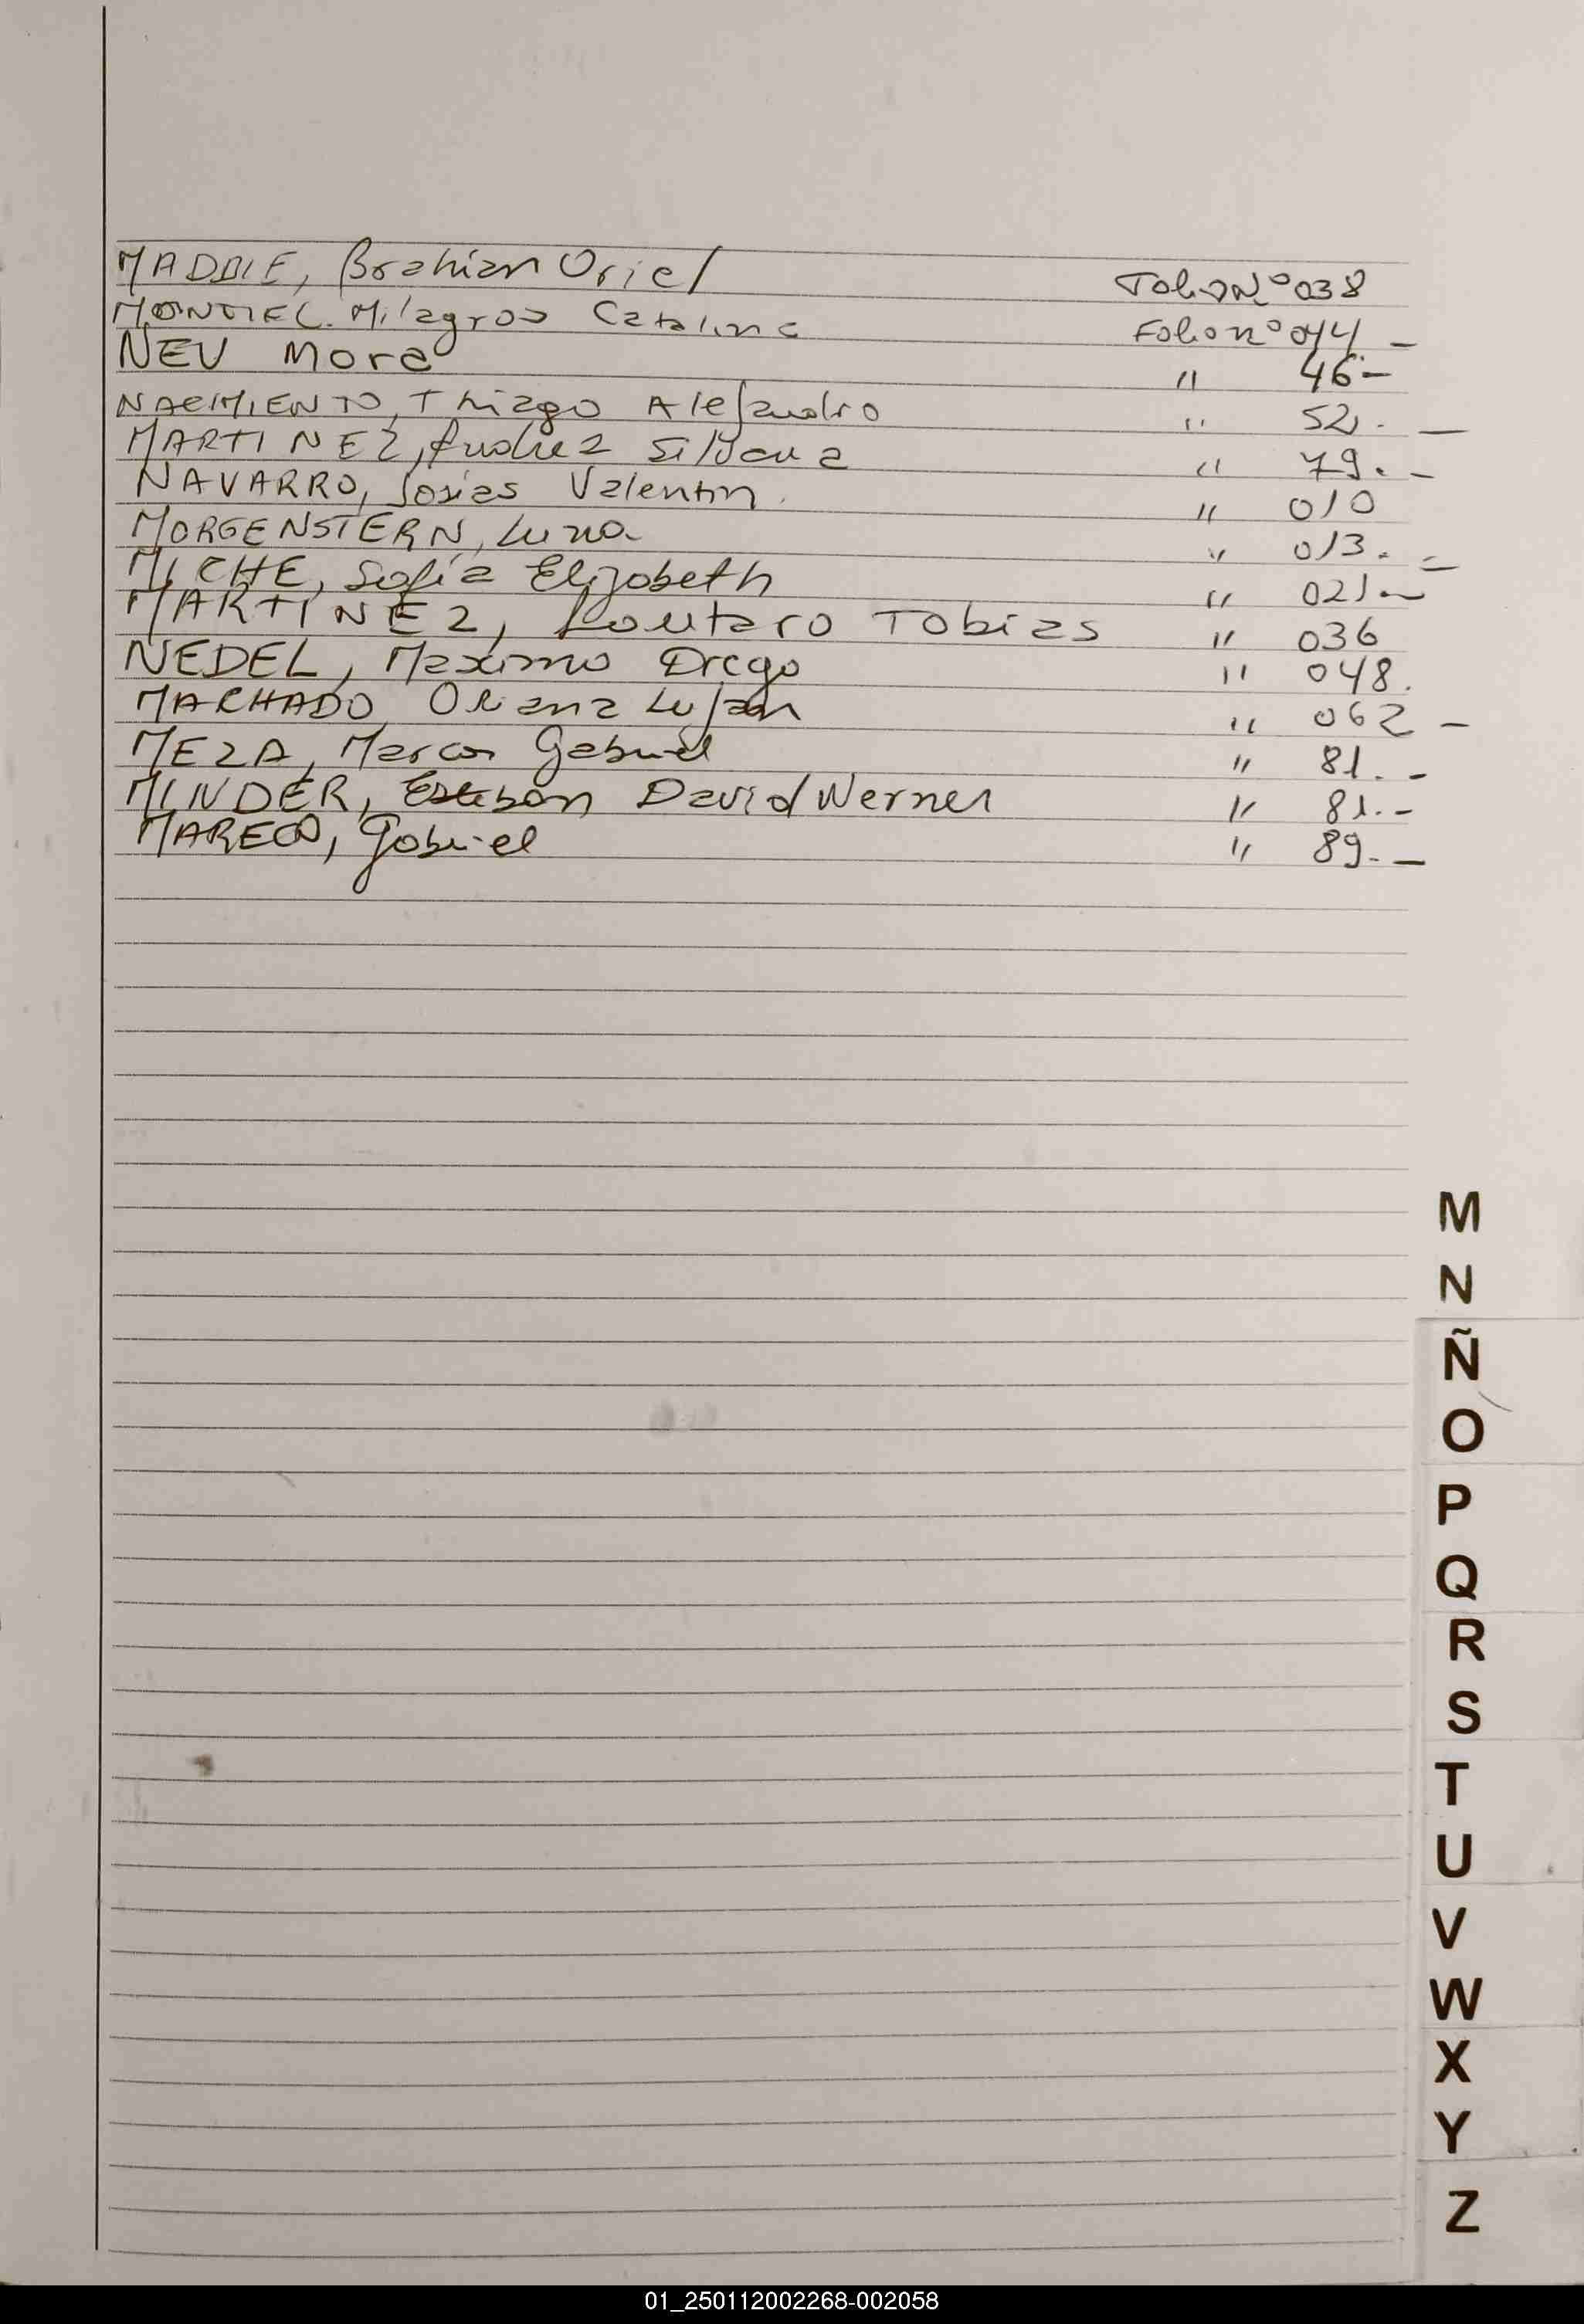 MADDIE, Brahian Oriel Folio Nº 038
MONTIEL. Milagros Catalina Folio nº 044 -
NEU Mora " 46 -
NACIMIENTO, Thiago Alejandro " 52. -
MARTINEZ, Silvana " 79. -
NAVARRO, Josias Valentin. " 010
MORGENSTERN, Luna. " 013. =
MICHE, Sofía Elizabeth " 021. -
MARTINEZ, Loutaro Tobias " 036
NEDEL, Maximo Diego " 048.
MACHADO Oriana Lujan " 062 -
MEZA, Marcos Gabriel " 81. -
MINDER, Esteban David Werner " 81. -
MARECO, Gabriel " 89. -
M
N
Ñ
O
P
Q
R
S
T
U
V
W
X
Y
Z
01_250112002268-002058